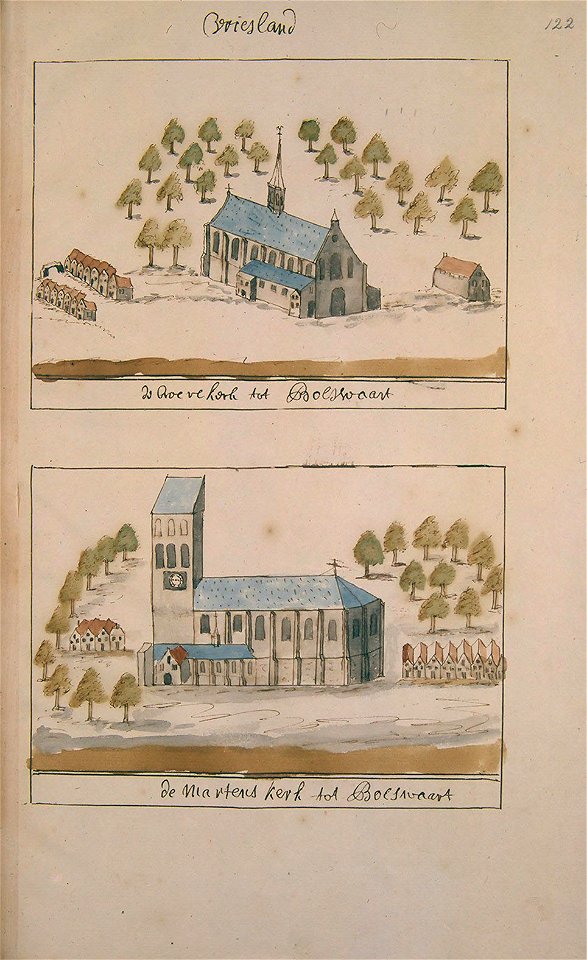 Vriesland
122
de Broere kerk tot Bolswaart
de Martens kerk tot Bolswaart